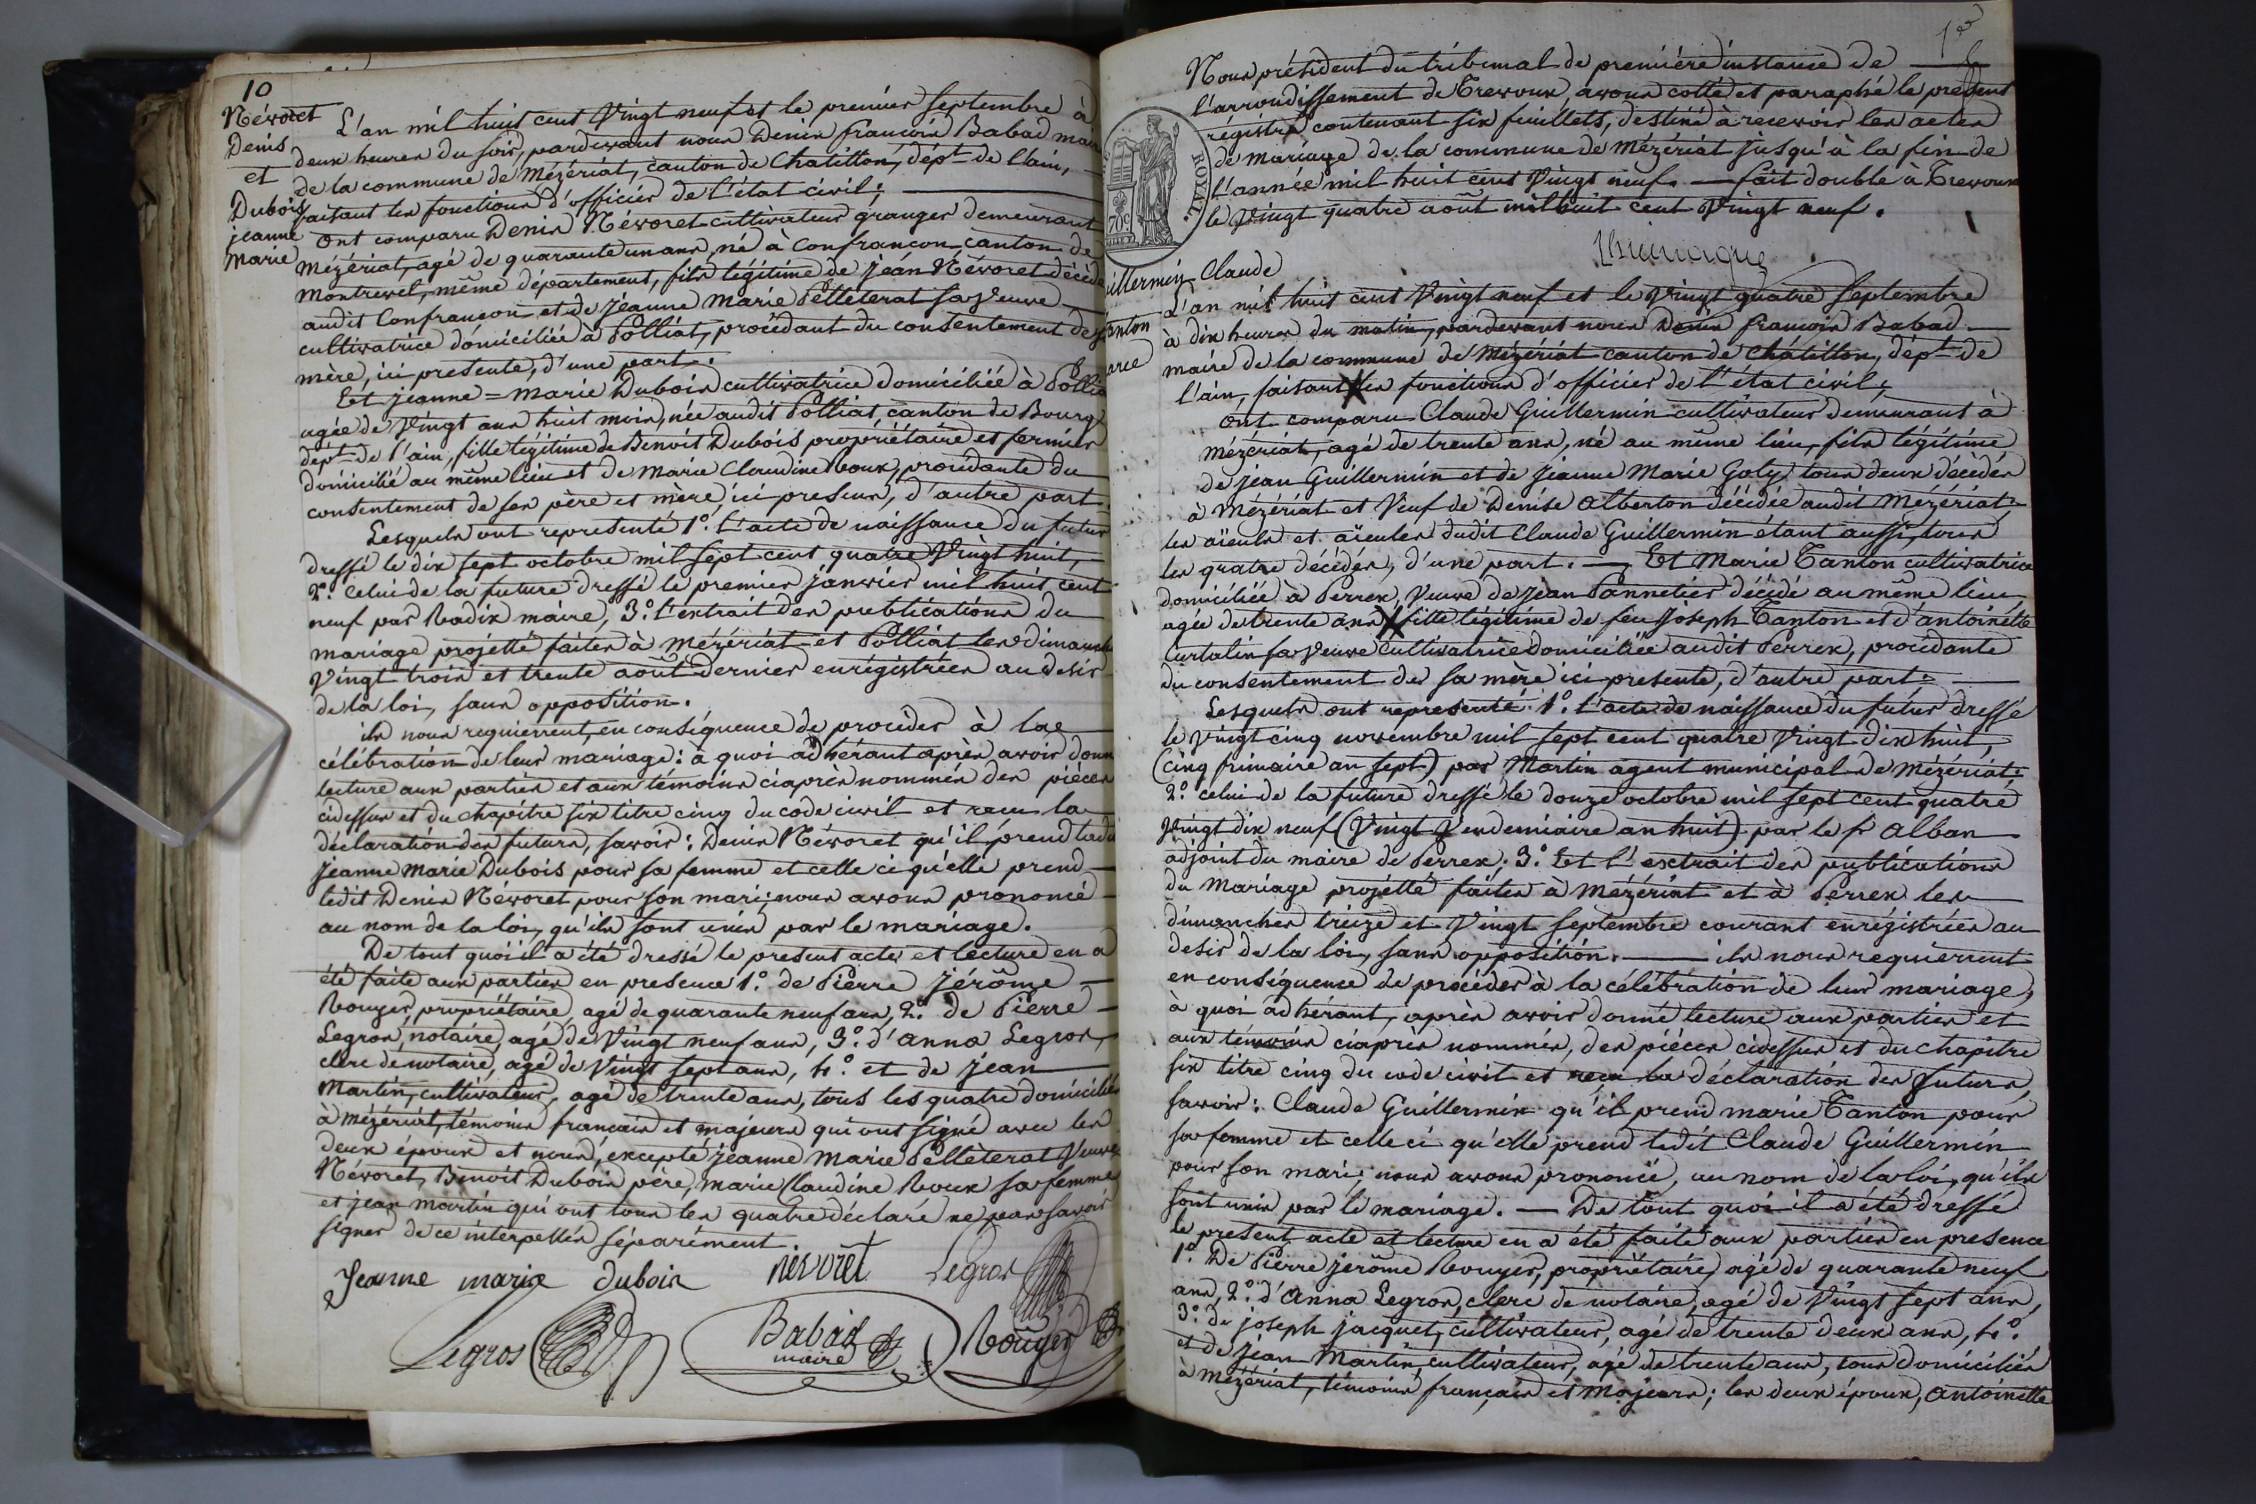 10
Névoret
Denis
et
Dubois
jeanne
Marie
L'an mil huit cent Vingt neuf et le premier Septembre à
deux heures du soir, pardevant nous Denis françois Babad maire
de la commune de Mézériat, canton de Chatillon, dépt. de l'ain,
faisant les fonctions d'officier de l'état civil;
Ont comparu Denis Névoret cultivateur granger demeurant
Mézériat, agé de quarante un ans, né à Confrançon canton de
Montrevel, même département, fils légitime de Jean Névoret décédé
audit Confrançon et de Jeanne Marie Pelleterat sa Veuve
cultivatrice domiciliée à Polliat, procédant du consentement de sa
mère, ici presente, d'une part.
Et jeanne = Marie Dubois cultivatrice domiciliée à Polliat
agée de Vingt ans huit mois, née audit Polliat, canton de Bourg
dept de l'ain, fille légitime de Benoit Dubois propriétaire et fermier
domicilié au même lieu et de Marie Claudine Roux, procédante du
consentement de ses père et mère, ici presens, d'autre part
Lesquels ont representé 1º. L'acte de naissance du futur
dressé le dix sept octobre mil sept cent quatre Vingt huit,
2º. Celui de la future dressé le premier janvier mil huit cent
neuf par Radix maire, 3º. L'extrait des publications du
mariage projetté faites à Mézériat et Polliat les dimanches
Vingt trois et trente août dernier enrégistrées au desir
de la loi, sans opposition.
ils nous requierent, en conséquence de procéder à la
célébration de leur mariage: à quoi adhérant après avoir donné
lecture aux parties et aux témoins ciaprès nommés des pièces
cidessus et du chapitre six titre cinq du code civil et recu la
déclaration des futurs, savoir: Denis Névoret qu'il prend ladite
Jeanne Marie Dubois pour sa femme et celle ci qu'elle prend
ledit Denis Névoret pour son mari; nous avons prononcé
au nom de la loi, qu'ils sont unis par le mariage.
De tout quoi il a été dressé le present acte et lecture en a
été faite aux parties en presence 1º. de Pierre Jérôme
Rouyer, propriétaire, agé de quarante neuf ans, 2º. de Pierre
Legros, notaire, agé de Vingt neuf ans, 3º. d'Anna Legros,
clerc de notaire, agé de Vingt sept ans, 4º. et de Jean
Martin, cultivateur, agé de trente ans, tous les quatre domiciliés
à Mézériat, témoins français et majeurs qui ont signé avec les
deux époux et nous, excepté Jeanne Marie Pelleterat Veuve
Névoret, Benoit Dubois père, Marie Claudine Roux sa femme
et jean Martin qui ont tous les quatre déclaré ne pas savoir
signer de ce interpellés séparément.
Jeanne marie dubois nevoret Legros
Legros Babad maire Rouyer
1er
Nous président du tribunal de première instance de
l'arrondissement de Trevoux, avons cotté et paraphé le présent
régistre contenant six feuillets, destiné à recevoir les actes
de mariage de la commune de Mézériat jusqu'à la fin de
l'année mil huit cent Vingt neuf. fait double à Trevoux
le Vingt quatre août mil huit cent Vingt neuf.
ROYAL.
70c
illermin Claude
anton
arie
L'an mil huit cent Vingt neuf et le Vingt quatre Septembre
à dix heures du matin, pardevant nous Denis françois Babad
maire de la commune de Mézériat canton de Châtillon, dépt. de
l'ain, faisant les fonctions d'officier de l'état civil;
Ont comparu Claude Guillermin cultivateur demeurant à
Mézériat, agé de trente ans, né au même lieu, fils légitime
de jean Guillermin et de Jeanne Marie Goty tous deux décédés
à Mézériat et Veuf de Denise Alberton décédée audit Mézériat,
les aïeuls et aïeules dudit Claude Guillermin étant aussi tous
les quatre décédés, d'une part. Et Marie Tanton cultivatrice
domiciliée à Perrex, Veuve de Jean Pannetier décédé au même lieu
agée de trente ans, fille légitime de feu Joseph Tanton et d'antoinette
Curtalin sa Veuve cultivatrice domiciliée audit Perrex, procédante
du consentement de sa mère ici presente, d'autre part.
Lesquels ont representé: 1º. L'acte de naissance du futur dressé
le Vingt cinq novembre mil sept cent quatre Vingt dix huit,
(cinq frimaire an sept) par Martin agent municipal de Mézériat;
2º. celui de la future dressé le douze octobre mil sept cent quatre
Vingt dix neuf (Vingt Vendemiaire an huit) par le sr Alban
adjoint du maire de Perrex; 3º. Et l'extrait des publications
du Mariage projetté faites à Mézériat et à Perrex les
dimanches treize et Vingt septembre courant enrégistrées au
desir de la loi, sans opposition. ils nous requièrent
en conséquence de procéder à la célébration de leur mariage,
à quoi adhérant, après avoir donné lecture aux parties et
aux témoins ciaprès nommés, des pièces cidessus et du chapitre
six titre cinq du code civil et reçu la déclaration des futurs,
savoir: Claude Guillermin qu'il prend marie Tanton pour
sa femme et celle ci qu'elle prend ledit Claude Guillermin
pour son mari; nous avons prononcé, au nom de la loi, qu'ils
sont unis par le mariage. De tout quoi il a été dressé
le present acte et lecture en a été faite aux parties en presence
1º. De Pierre jerôme Rouyer, propriétaire, agé de quarante neuf
ans, 2º. d'Anna Legros, clerc de notaire, agé de Vingt sept ans,
3º. de joseph jacquet, cultivateur, agé de trente deux ans, 4º.
et de Jean Martin, cultivateur, agé de trente ans, tous domiciliés
à Mézériat, témoins français et Majeurs; les deux époux, Antoinette